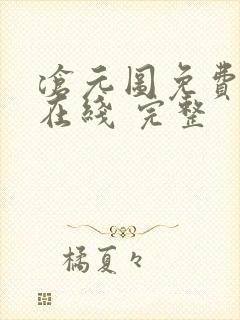 滄元圖免費
在綫 完整
橘夏々